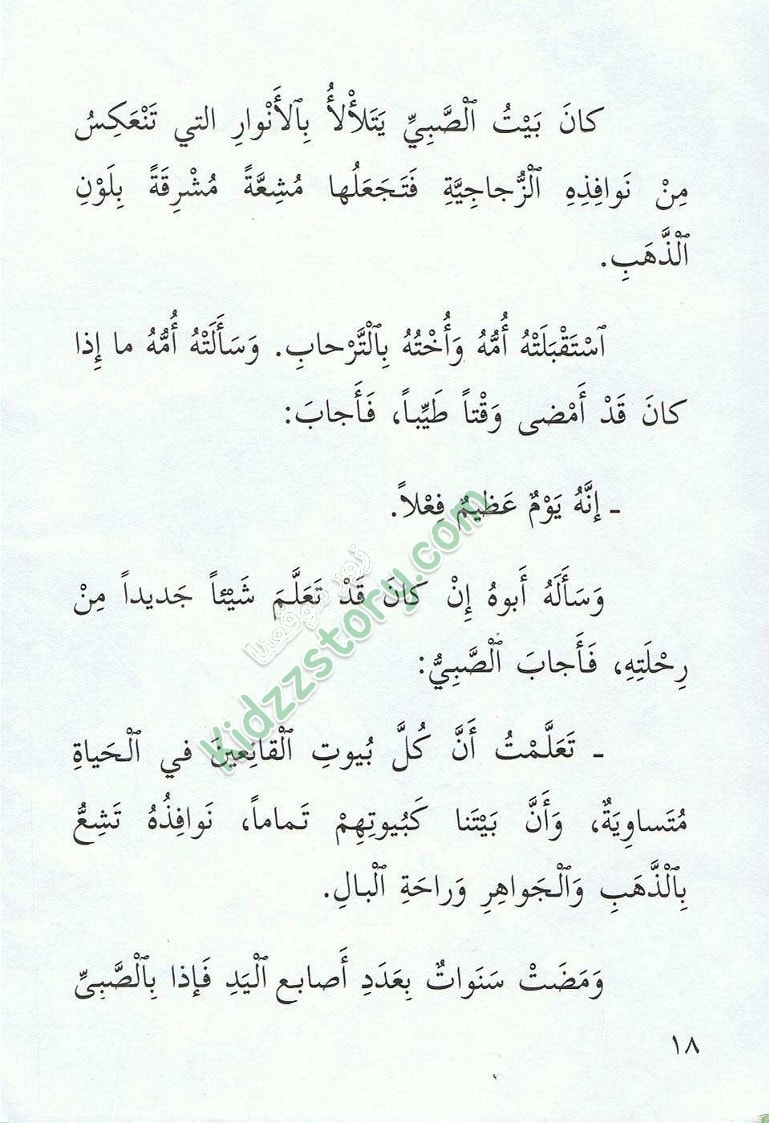 كانَ بَيْتُ ٱلْصَّبِيِّ يَتَلأْلأُ بِٱلأَنْوارِ التي تَنْعَكِسُ
مِنْ نَوافِذِهِ ٱلْزُّجاجِيَّةِ فَتَجَعَلُها مُشِعَّةً مُشْرِقَةً بِلَوْنِ
ٱلْذَّهَبِ.
ٱسْتَقْبَلَتْهُ أُمُّهُ وَأُخْتُهُ بِٱلْتَّرْحابِ. وَسَأَلَتْهُ أُمُّهُ ما إِذا
كانَ قَدْ أَمْضى وَقْتاً طَيِّباً، فَأَجابَ:
ـ إِنَّهُ يَوْمٌ عَظيمٌ فِعْلاً.
وَسَأَلَهُ أَبوهُ إِنْ كانَ قَدْ تَعَلَّمَ شَيْئاً جَديداً مِنْ
رِحْلَتِهِ، فَأَجابَ ٱلْصَّبِيُّ:
ـ تَعَلَّمْتُ أَنَّ كُلَّ بُيوتِ ٱلْقانِعينَ في ٱلْحَياةِ
مُتَساوِيَةٌ، وَأَنَّ بَيْتَنا كَبُيوتِهِمْ تَماماً، نَوافِذُهُ تَشِعُّ
بِٱلْذَّهَبِ وَٱلْجَواهِرِ وَراحَةِ ٱلْبالِ.
وَمَضَتْ سَنَواتٌ بِعَدَدِ أَصابع ٱلْيَدِ فَإذا بِٱلْصَّبِيِّ
١٨
زوروا موقعنا
kidzzstory.com